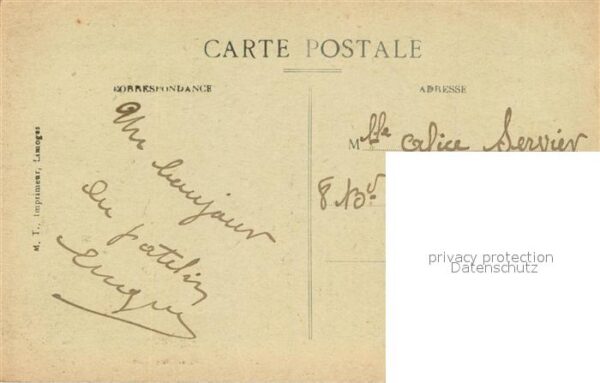 CARTE POSTALE
CORRESPONDANCE
ADRESSE
M. T., Imprimeur, Limoges
Un bonjour
du patelin
Mlle Alice Servier
8 Bd
privacy protection
Datenschutz